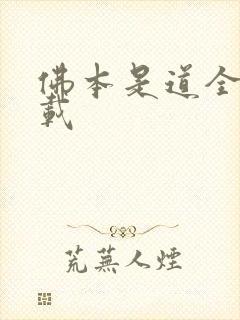 佛本是道全
載
荒蕪人煙